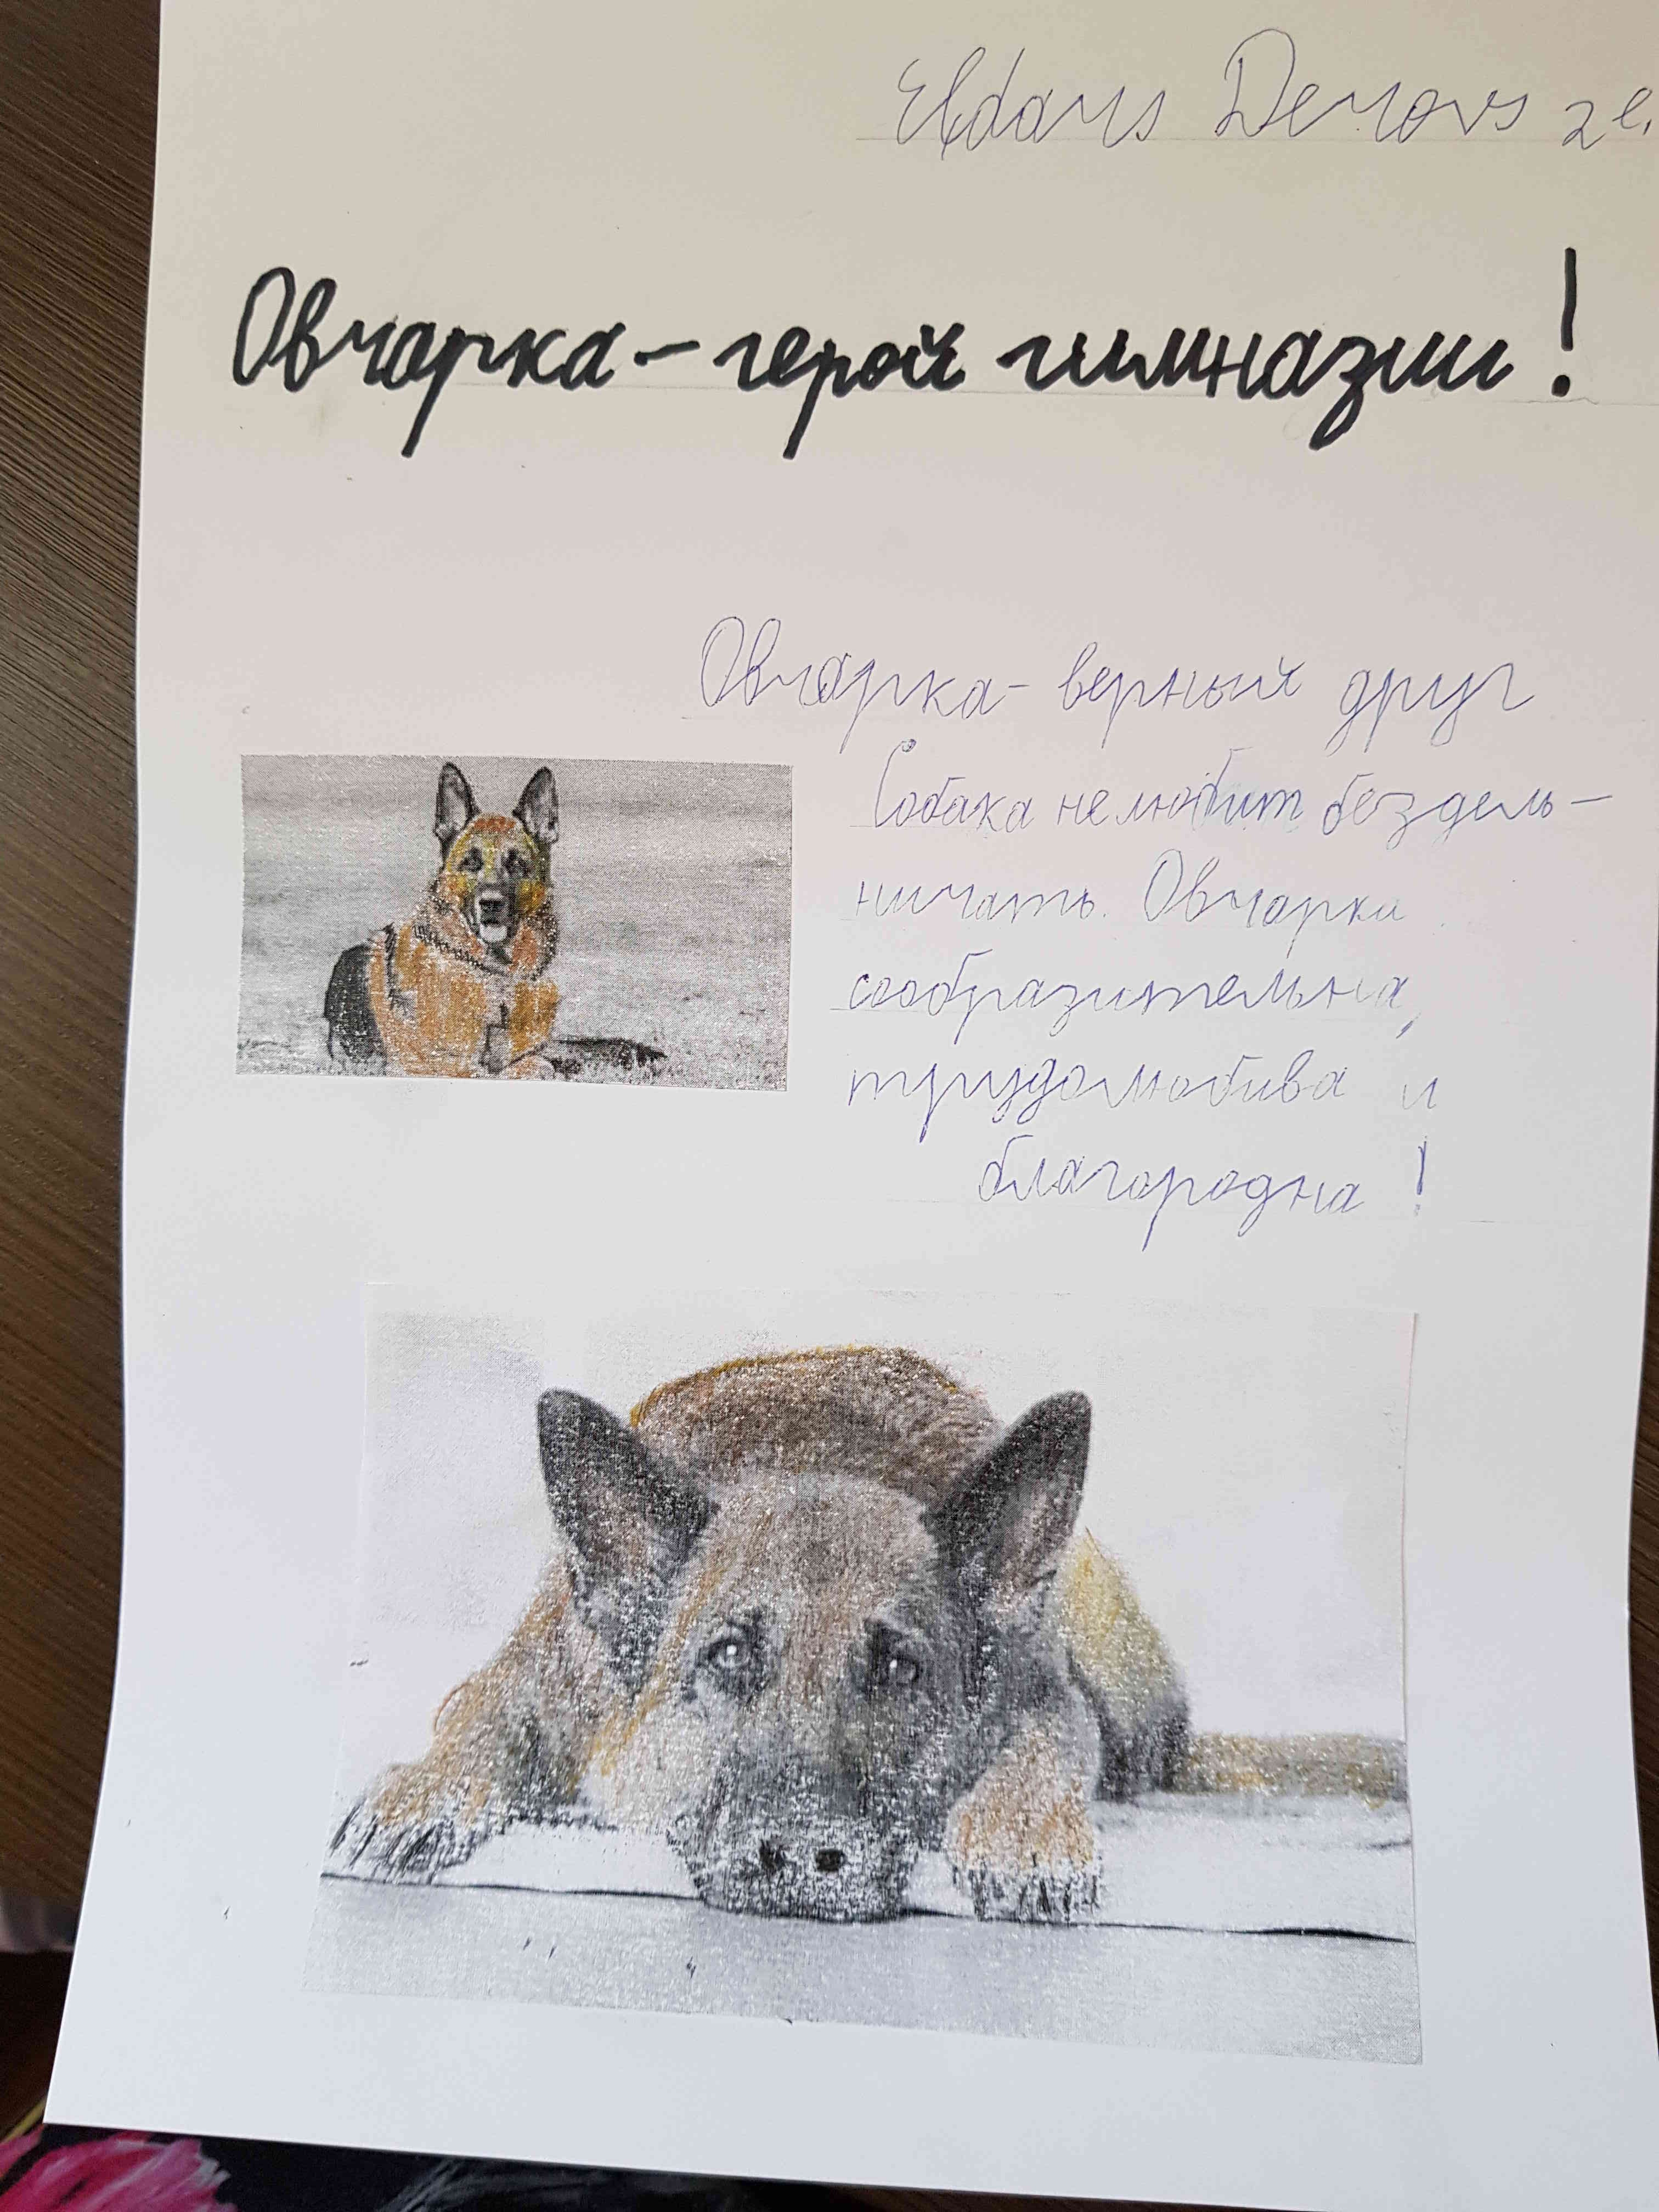 Eldars Demovs 2e.
Овчарка - герой гимназии!
Овчарка - верный друг
Собака не любит бездель-
ничать. Овчарка
сообразительна,
трудолюбива и
благородна!